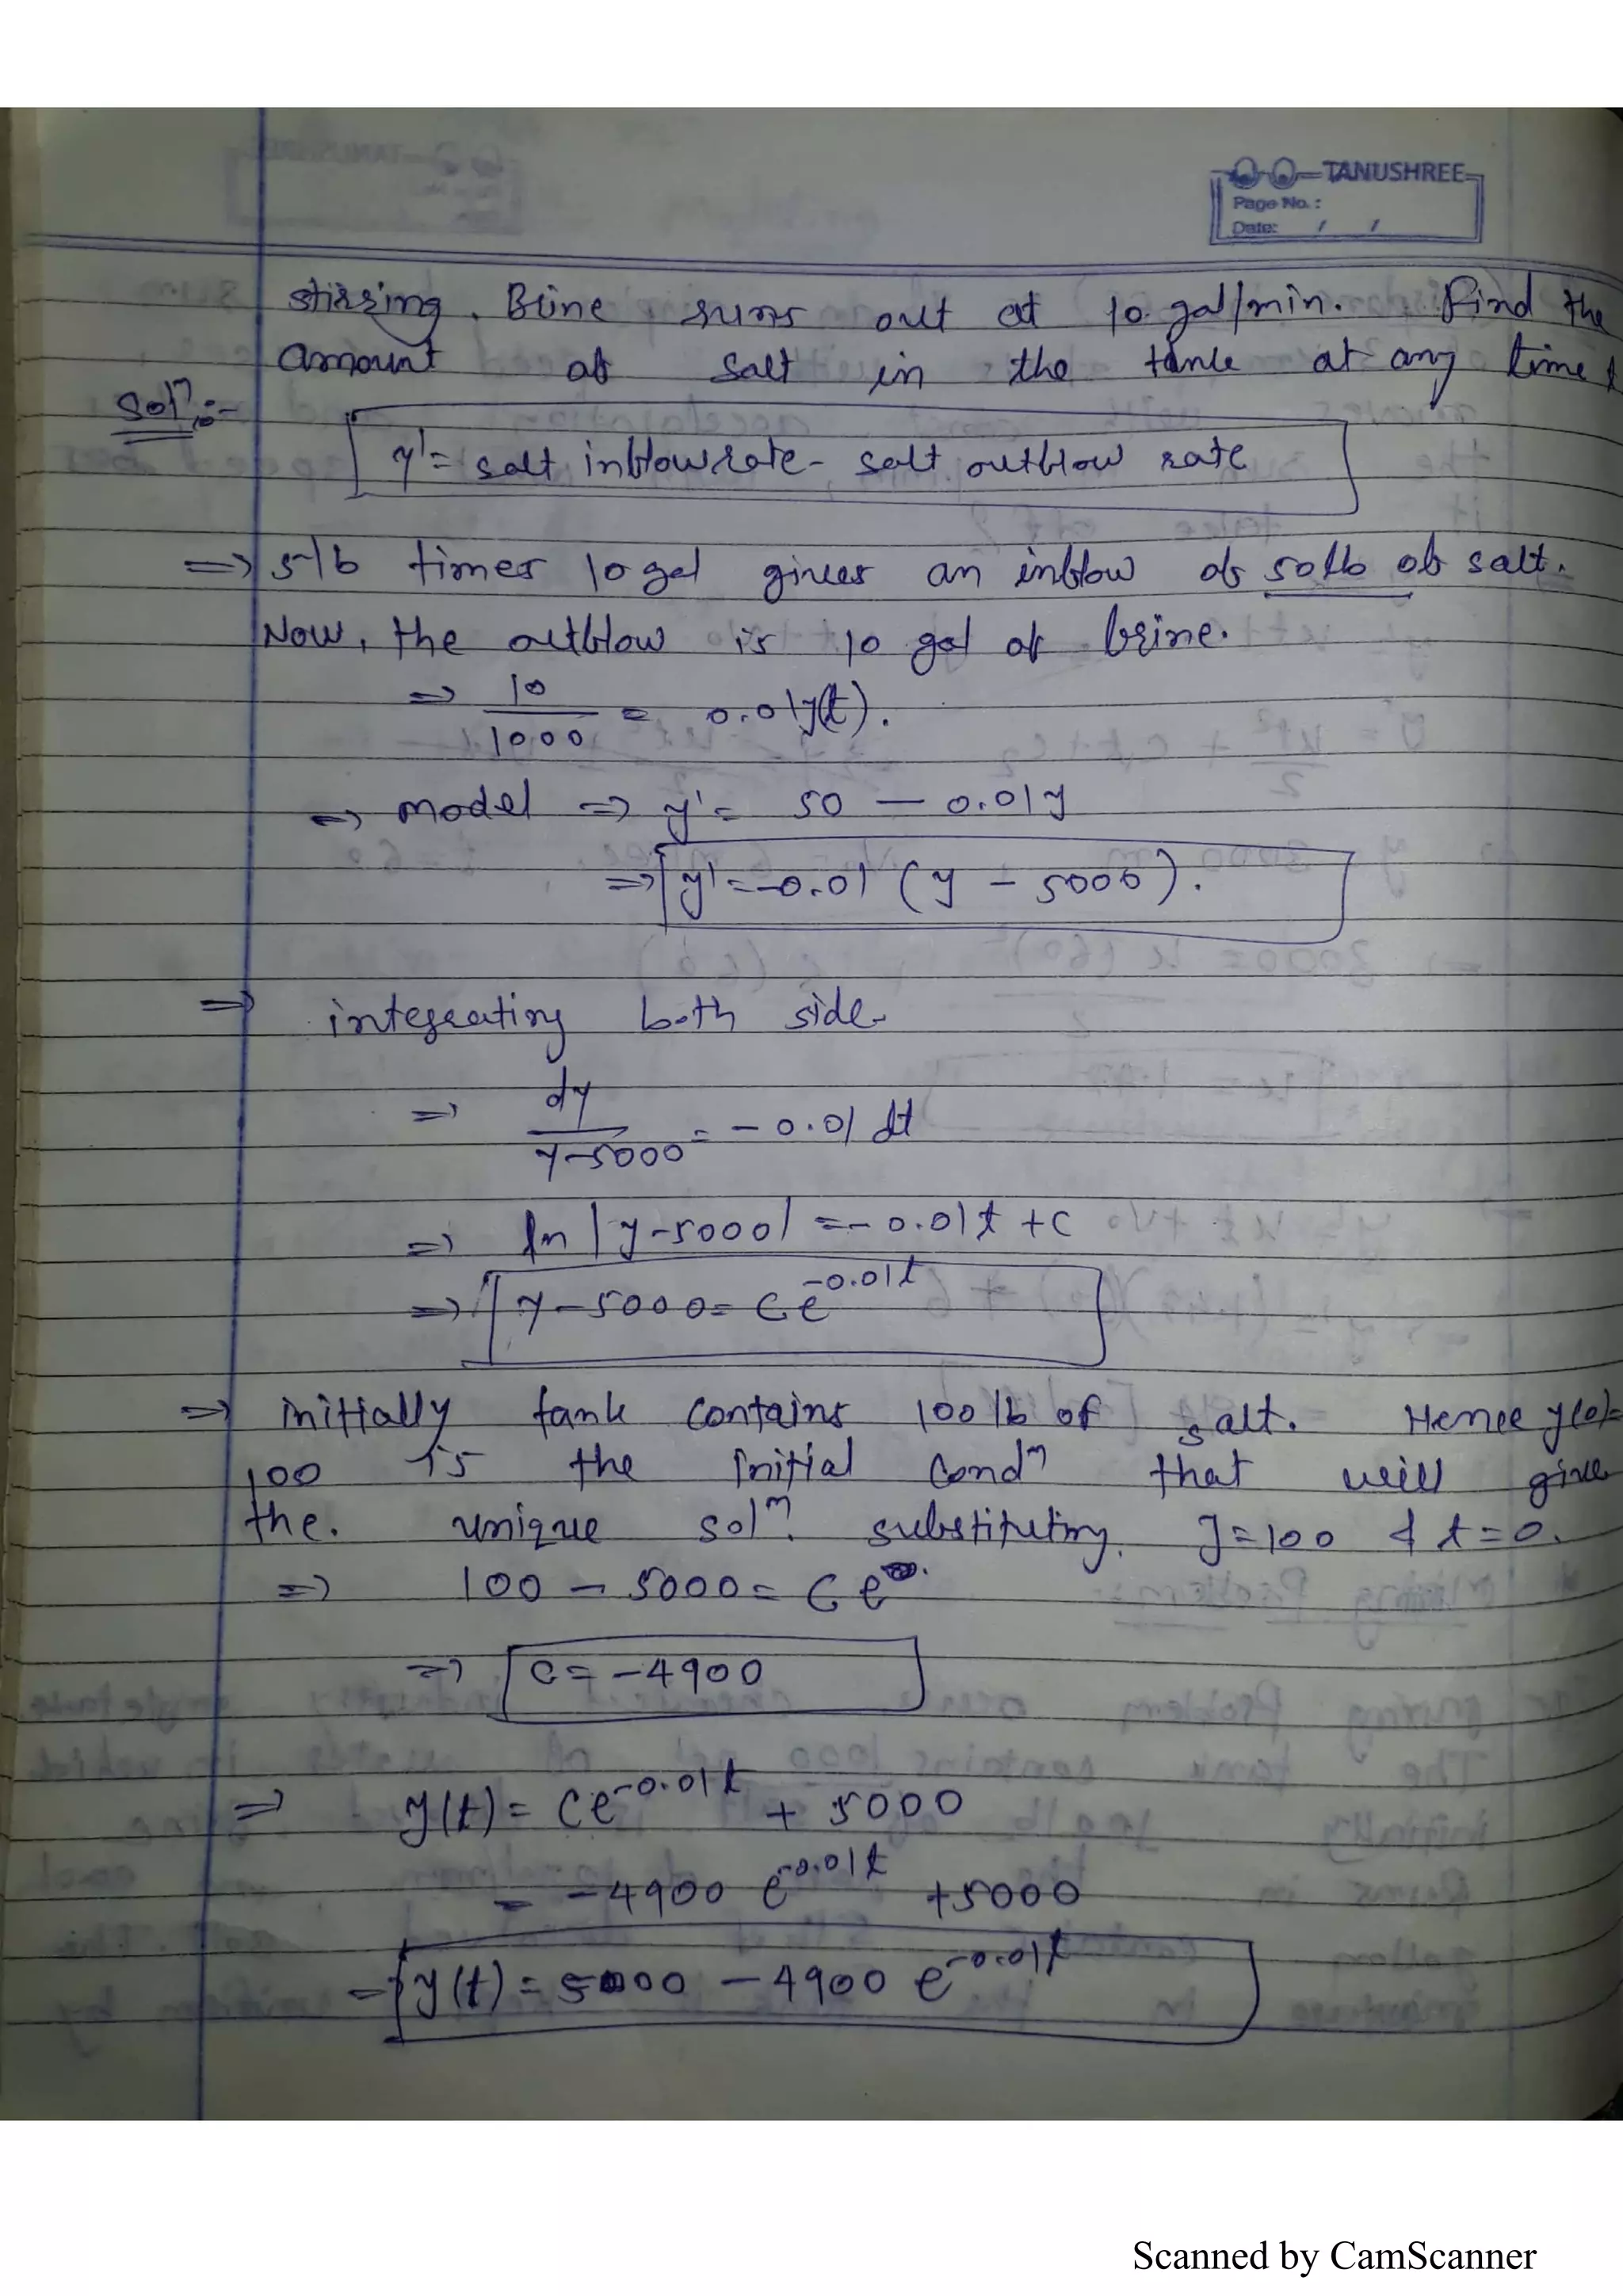 TANUSHREE
Page No.:
Date: / /
stirring. Brine runs out at 10 gal/min. Find the
amount of salt in the tank at any time t
Solⁿ:-
y' = salt inflow rate - salt outflow rate
=> 5 lb times 10 gal gives an inflow of 50 lb of salt.
Now, the outflow is 10 gal of brine.
=> 10/1000 = 0.01y(t).
=> model => y' = 50 - 0.01y
=> y' = -0.01 (y - 5000).
=> integrating both side
=> dy/y-5000 = -0.01 dt
=> ln |y-5000| = -0.01t + c
=> y - 5000 = Ce^-0.01t
=> initially tank contains 100 lb of salt. Hence y(0)=
100 is the initial condⁿ that will give
the. unique solⁿ. substituting. y=100 & t=0.
=> 100 - 5000 = C e
=> C = -4900
=> y(t) = Ce^-0.01t + 5000
= -4900 e^-0.01t + 5000
= y(t) = 5000 - 4900 e^-0.01t
Scanned by CamScanner